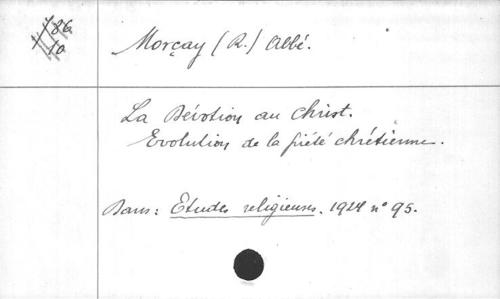 Y86
10
Morçay (R.) Abbé.
La Dévotion au Christ.
Evolution de la piété chrétienne.
Dans: Etudes religieuses. 1924 n° 95.